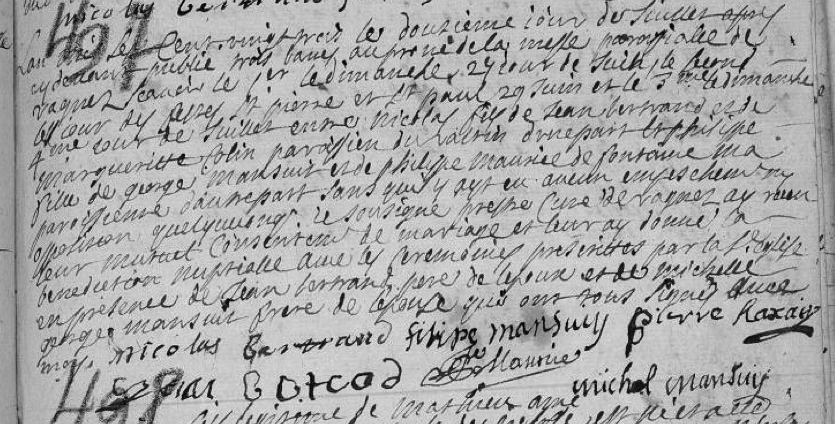 nicolas
497
Lan mil sept Cent vingt trois le douzieme iour de Juillet apres
cydevant publié trois bans au prone de la messe paroissialle de
vagnez scavoir le 1er le dimanche 27 iour de Juin, le second
le iour des festes St pierre et St paul 29 Juin et le 3me le dimanche
4me iour de Juillet entre nicolas fils de Jean bertrand et de
margueritte Colin paroissien du valtin d'unepart et philippe
fille de george mansuit et de philippe maurice de fontaine ma
paroissienne dautrepart sans quil y ayt eu aucun empeschement ny
opposition quelquconq Je sousigné prestre Curé de vagnez ay receu
leur mutuel Consentem de mariage et leur ay donné la
benediction nuptialle avec les Ceremonies prescrittes par la Ste Eglise
en presence de Jean bertrand pere de lespoux et de michelle
george mansuit frere de lespouse qui ont tous signés avec
moy. nicolas bertrand filipe mansuy pierre
Maurice
michel mansuy
498
de mathieu